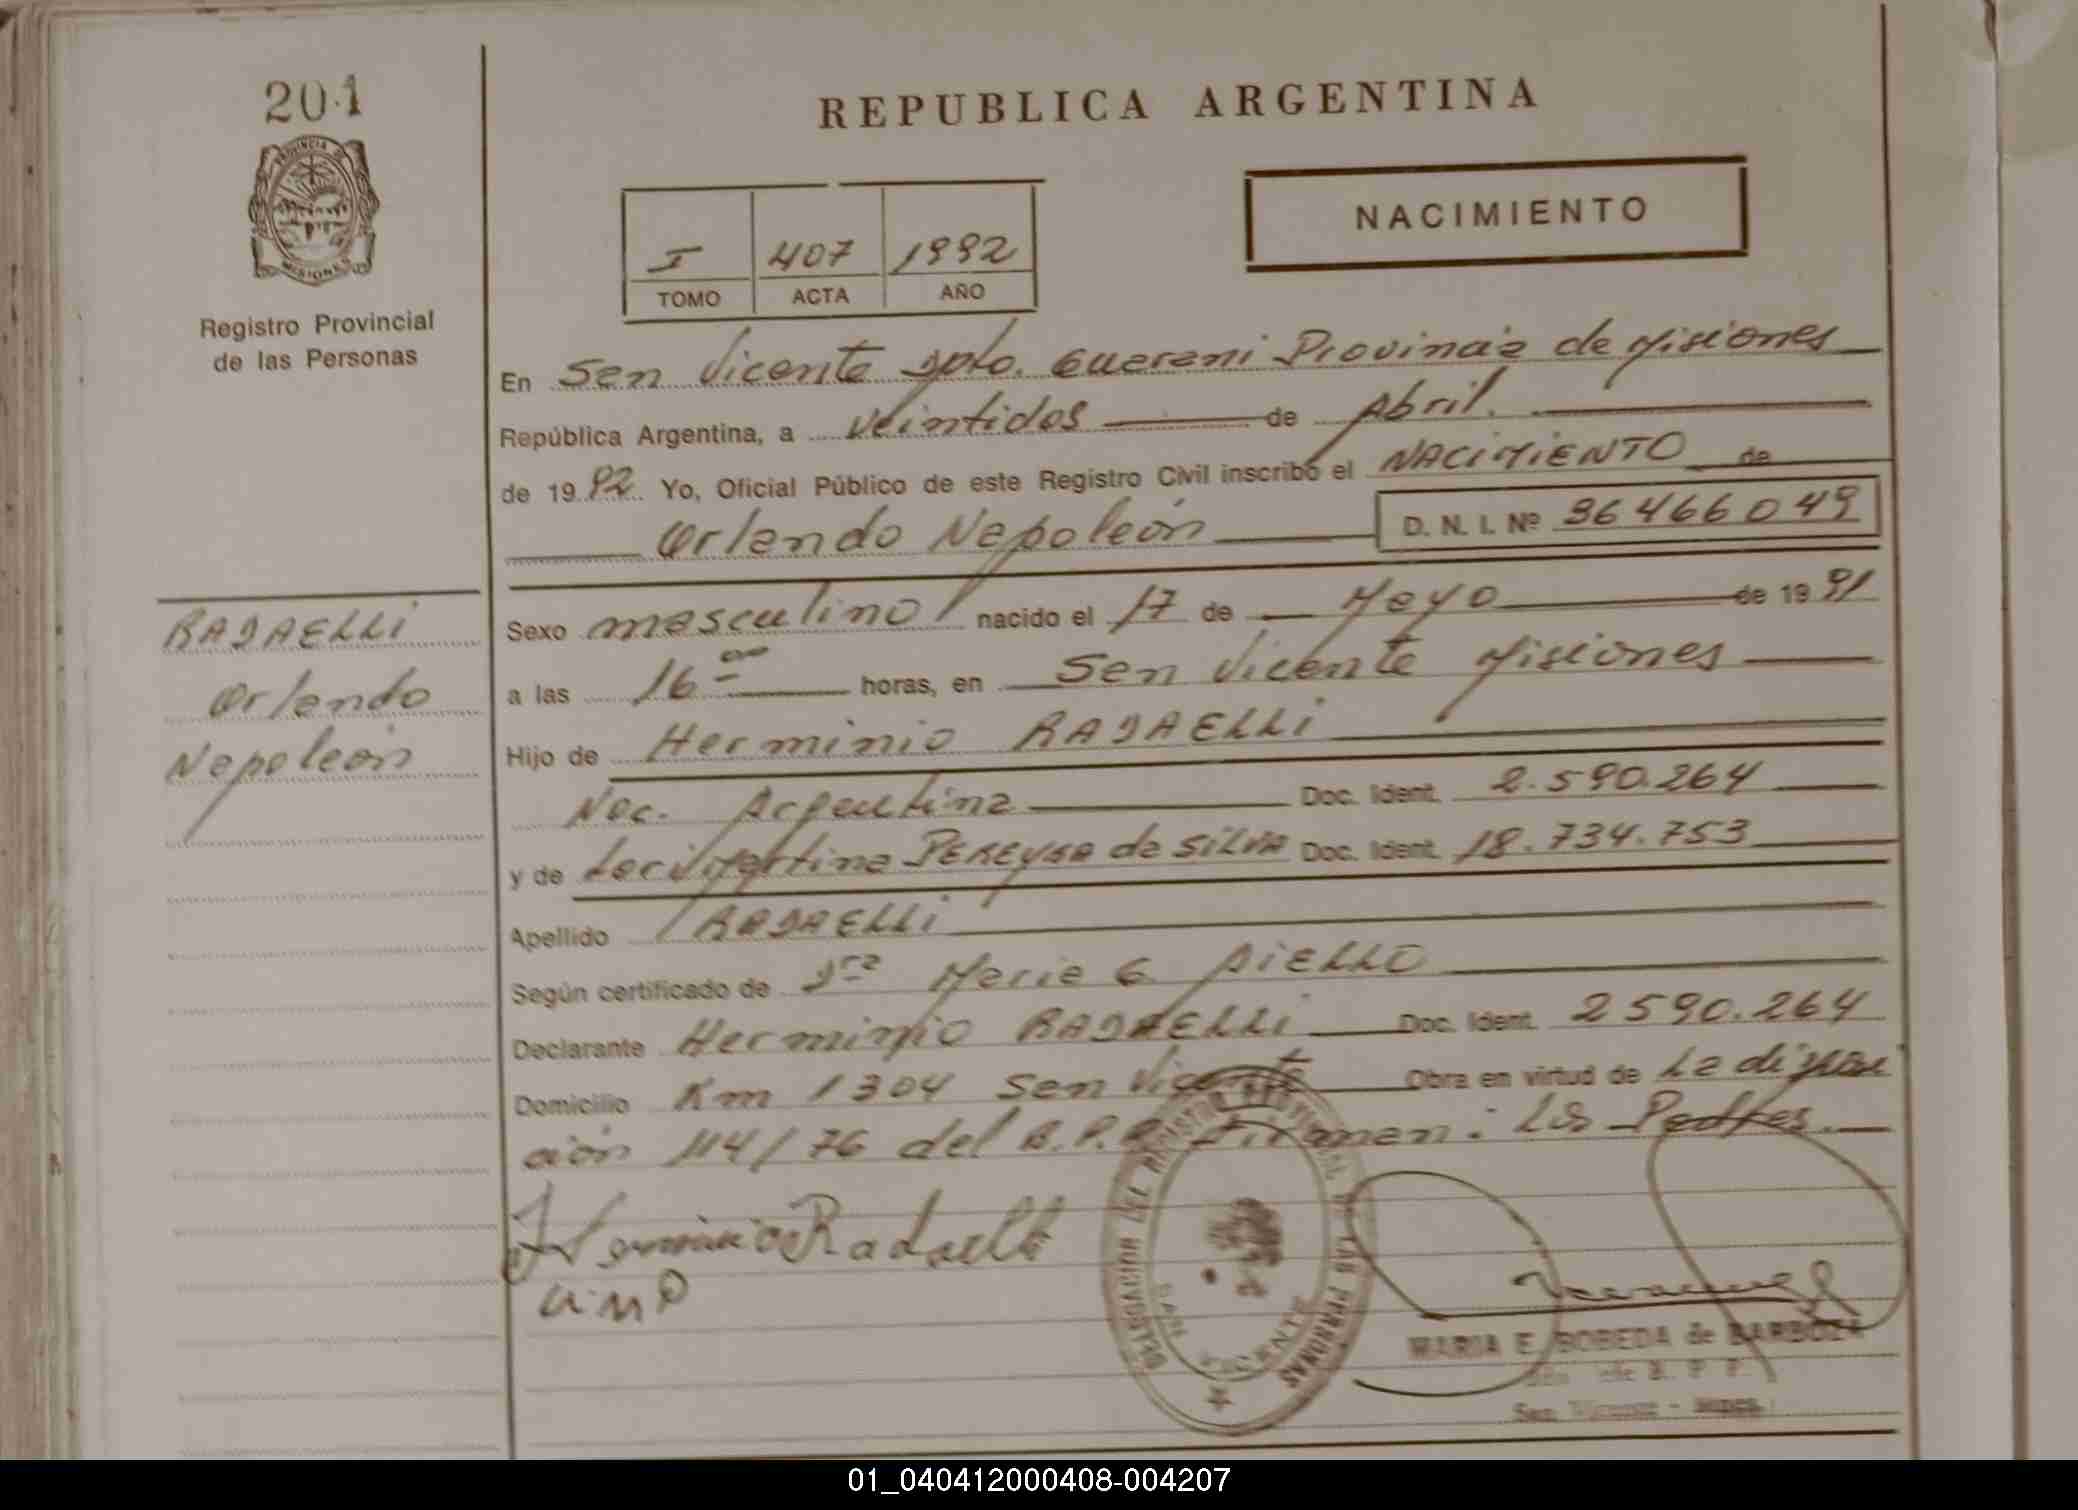 201
PROVINCIA DE
MISIONES
Registro Provincial
de las Personas
REPUBLICA ARGENTINA
NACIMIENTO
I 407 1992
TOMO ACTA AÑO
En San Vicente Dpto. Guarani Provincia de Misiones
República Argentina, a veintidos de Abril.
de 1992 Yo, Oficial Público de este Registro Civil inscribo el NACIMIENTO de
Orlando Napoleón D. N. I. Nº 36466049
RADAELLI
Orlando
Napoleón
Sexo masculino nacido el 17 de Mayo de 1991
a las 16 00 horas, en San Vicente Misiones
Hijo de Herminio RADAELLI
Nac. Argentina Doc. Ident. 2.590.264
y de PEREYRA de SILVA Doc. Ident. 18.734.753
Apellido RADAELLI
Según certificado de Dra Maria G. AIELLO
Declarante Herminio RADAELLI Doc. Ident. 2590.264
Domicilio Km 1304 San Vicente Obra en virtud de La disposi
ción 114/76 del R.P.P. Firman: Los Padres.
Herminio Radaelli
DELEGACION DEL REGISTRO PROVINCIAL DE LAS PERSONAS
SAN VICENTE
MARIA E. BOBEDA de BARBOZA
R. P. P.
San Vicente - Mnes.
01_040412000408-004207